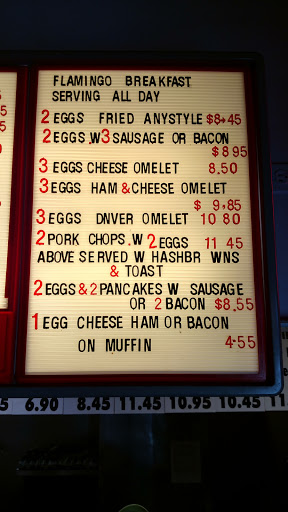 FLAMINGO BREAKFAST
SERVING ALL DAY
2 EGGS FRIED ANYSTYLE $8.45
2 EGGS.W3 SAUSAGE OR BACON
$8 95
3 EGGS CHEESE OMELET 8.50
3 EGGS HAM & CHEESE OMELET
$ 9.85
3 EGGS DNVER OMELET 10 80
2 PORK CHOPS.W 2 EGGS 11 45
ABOVE SERVED W HASHBR WNS
& TOAST
2 EGGS & 2 PANCAKES W SAUSAGE
OR 2 BACON $8.55
1 EGG CHEESE HAM OR BACON
ON MUFFIN 4.55
5 6.90 8.45 11.45 10.95 10.45 11